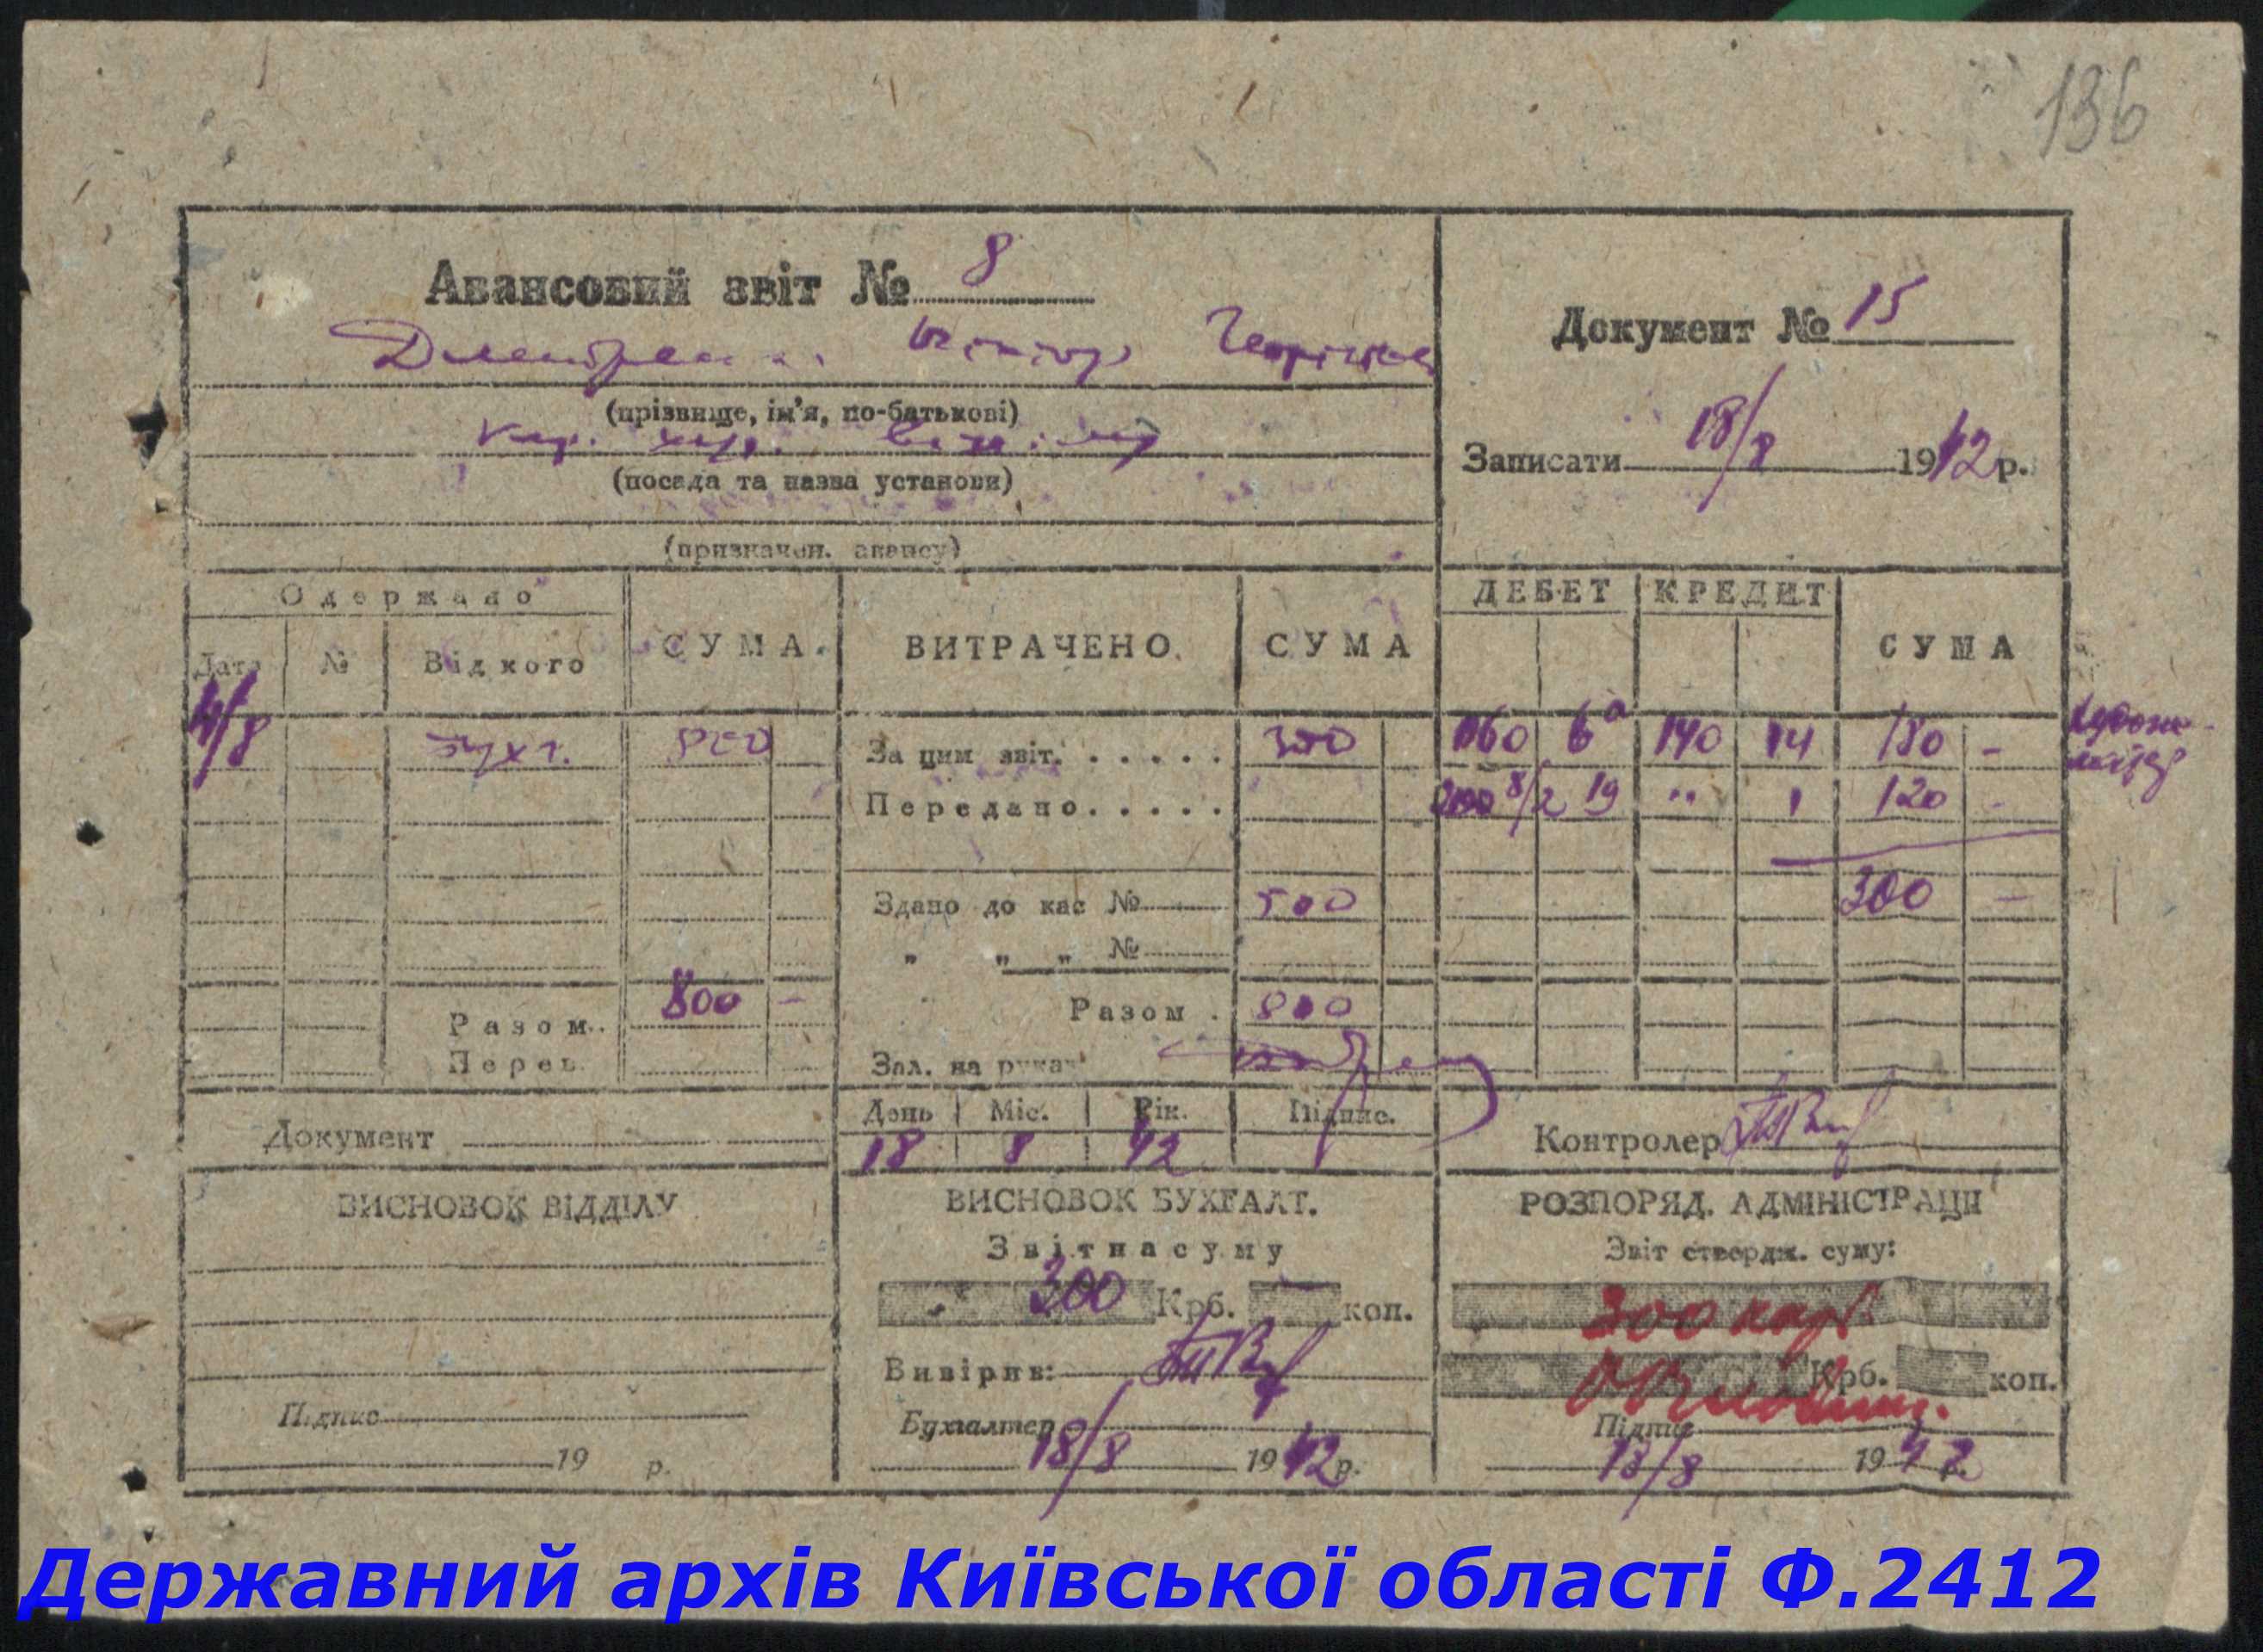 136
Авансовий звіт № 8
(прізвище, ім'я, по-батькові)
(посада та назва установи)
(призначен. авансу)
Документ № 15
Записати 18/8 1942 р.
Одержано
Дата № Від кого СУМА.
ВИТРАЧЕНО. СУМА
ДЕБЕТ КРЕДИТ СУМА
/8 800
За цим звіт. . . . . . 300
160 6а 140 14 180 -
Передано. . . . .
8/2 19 " " 120 -
300 -
Здано до кас № 500
" " " №
Разом. 800 -
Разом . 800
Перев.
Зал. на руках
Документ
День Міс. Рік. Підпис.
18 8 42
Контролер
ВИСНОВОК ВІДДІЛУ
Підпис
19 р.
ВИСНОВОК БУХГАЛТ.
Звіт на суму
300 Крб. — коп.
Вивірив:
Бухгалтер
18/8 1942 р.
РОЗПОРЯД. АДМІНІСТРАЦІІ
Звіт ствердж. суму:
300 карб
Крб. коп.
Підпис
18/8 1942 р.
Державний архів Київської області Ф.2412